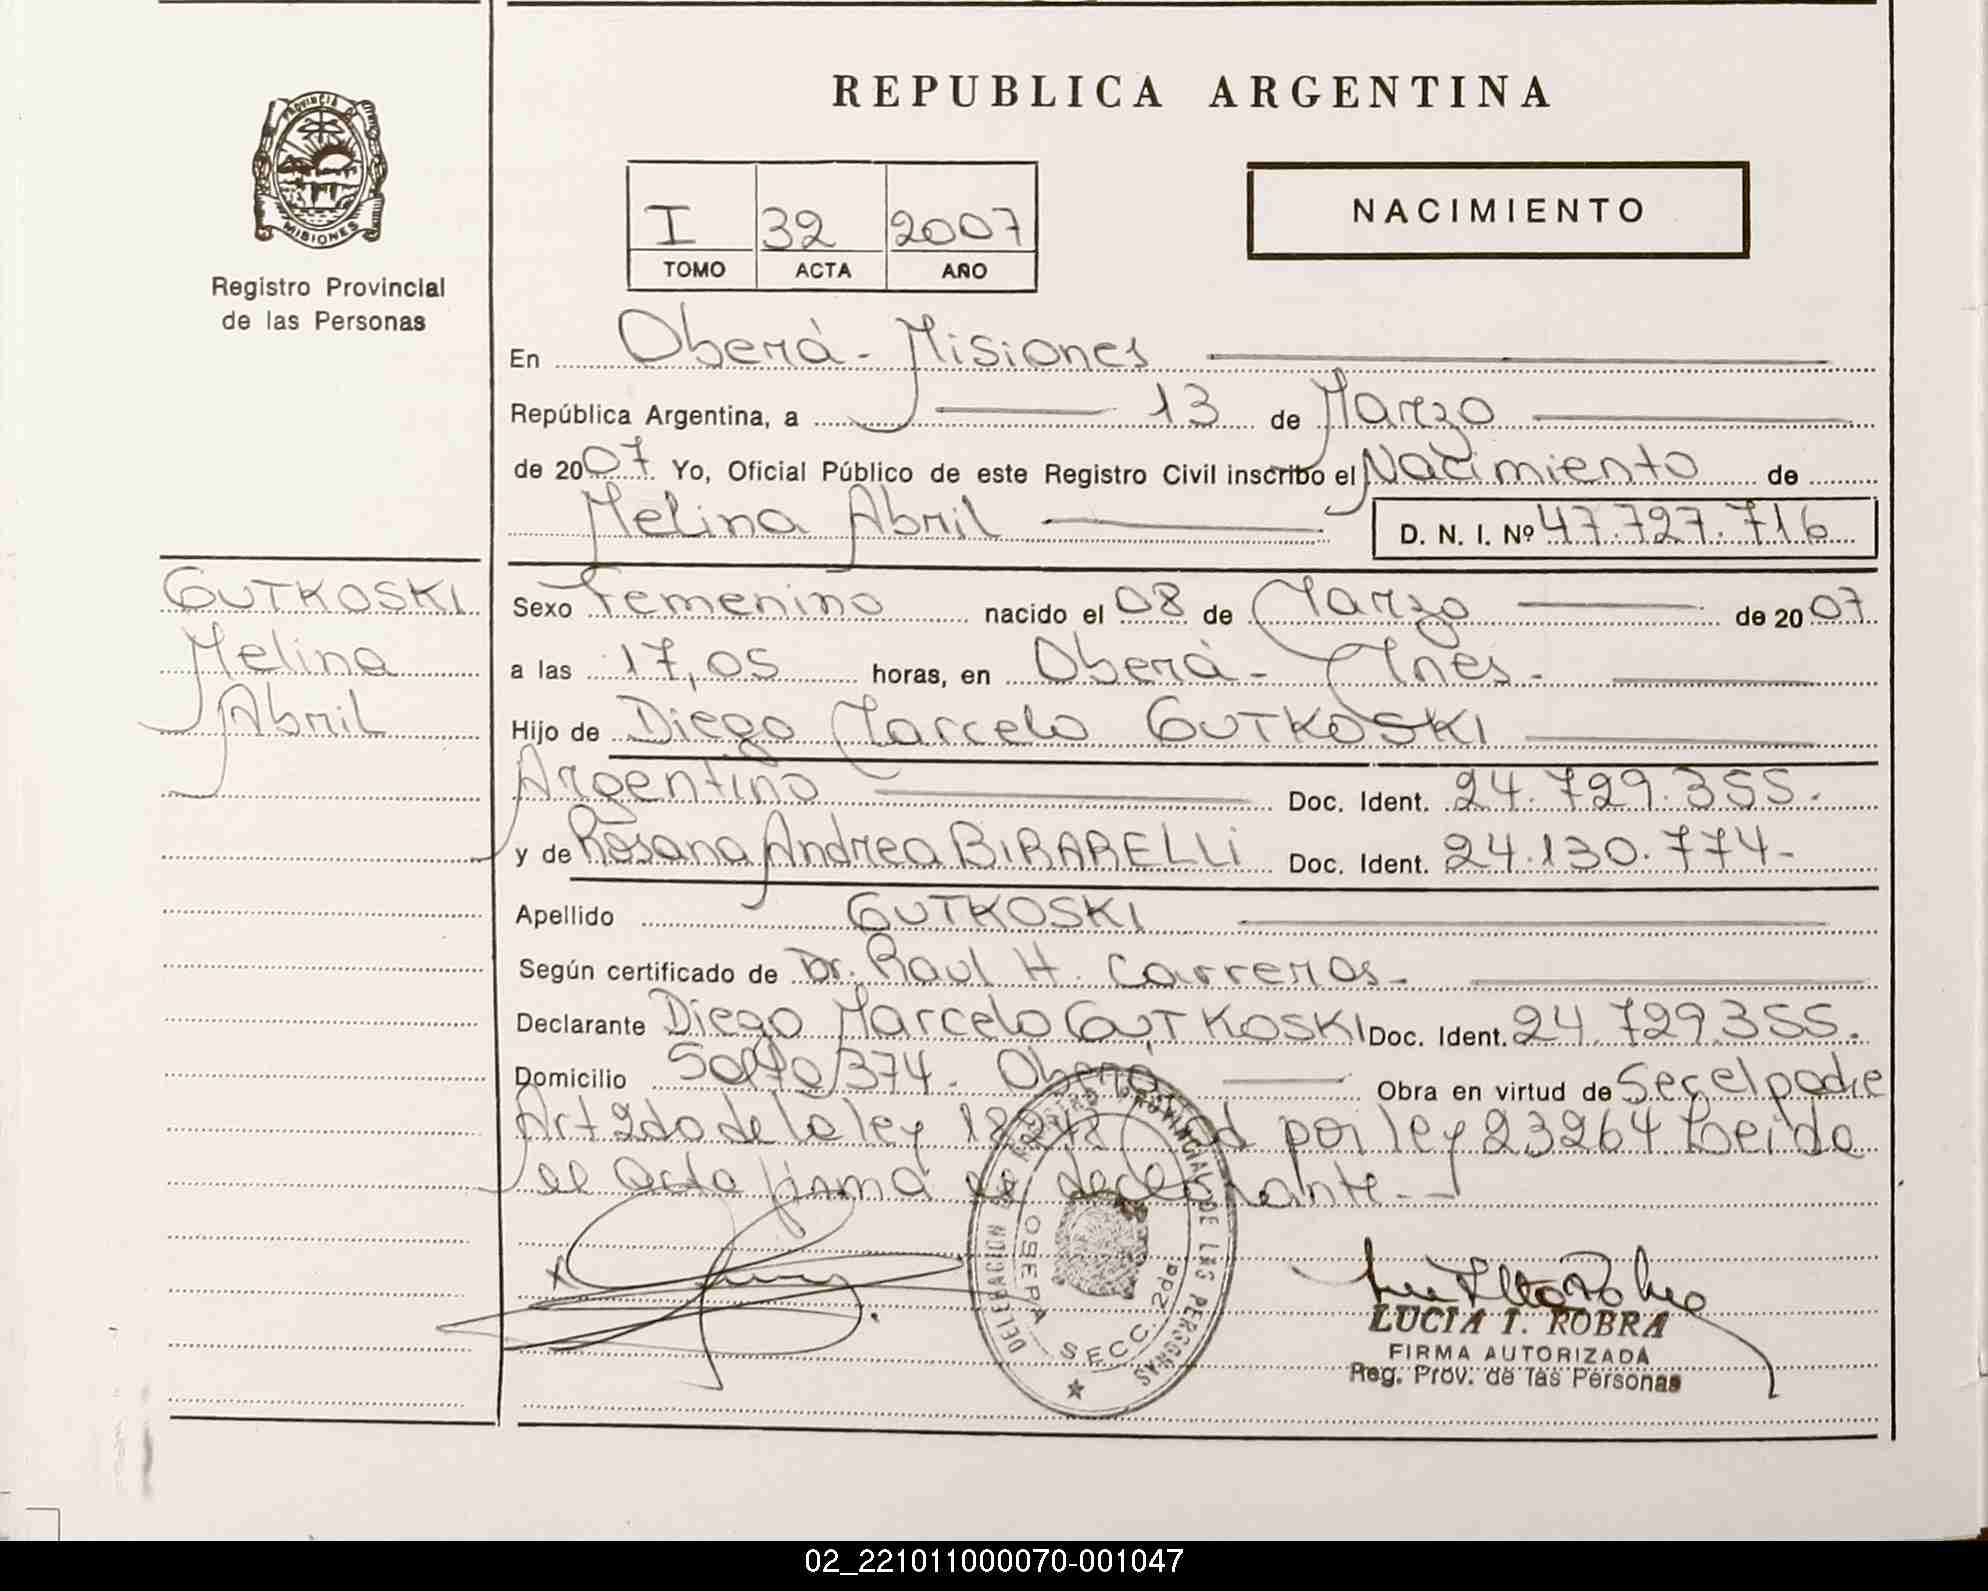 REPUBLICA ARGENTINA
PROVINCIA DE
MISIONES
Registro Provincial
de las Personas
I 32 2007
TOMO ACTA AÑO
NACIMIENTO
En Oberá - Misiones
República Argentina, a 13 de Marzo
de 2007 Yo, Oficial Público de este Registro Civil inscribo el Nacimiento de
Melina Abril D. N. I. Nº 47.727.716
GUTKOSKI
Melina
Abril
Sexo Femenino nacido el 08 de Marzo de 2007
a las 17,05 horas, en Oberá - Mnes.
Hijo de Diego Marcelo GUTKOSKI
Argentino Doc. Ident. 24.729.355.
y de Rosana Andrea BIRARELLI Doc. Ident. 24.130.774-
Apellido GUTKOSKI
Según certificado de Dr. Raul H. Carreras-
Declarante Diego Marcelo GUTKOSKI Doc. Ident. 24.729.355.
Domicilio Salto 374. Oberá Obra en virtud de Ser el padre
Art 2do de la ley 18248 por ley 23264 Leida
el acta firma el declarante.-
DELEGACION DE REGISTRO PROVINCIAL DE LAS PERSONAS
OBERA SECC. 2da.
LUCIA I. ROBRA
FIRMA AUTORIZADA
Reg. Prov. de las Personas
02_221011000070-001047